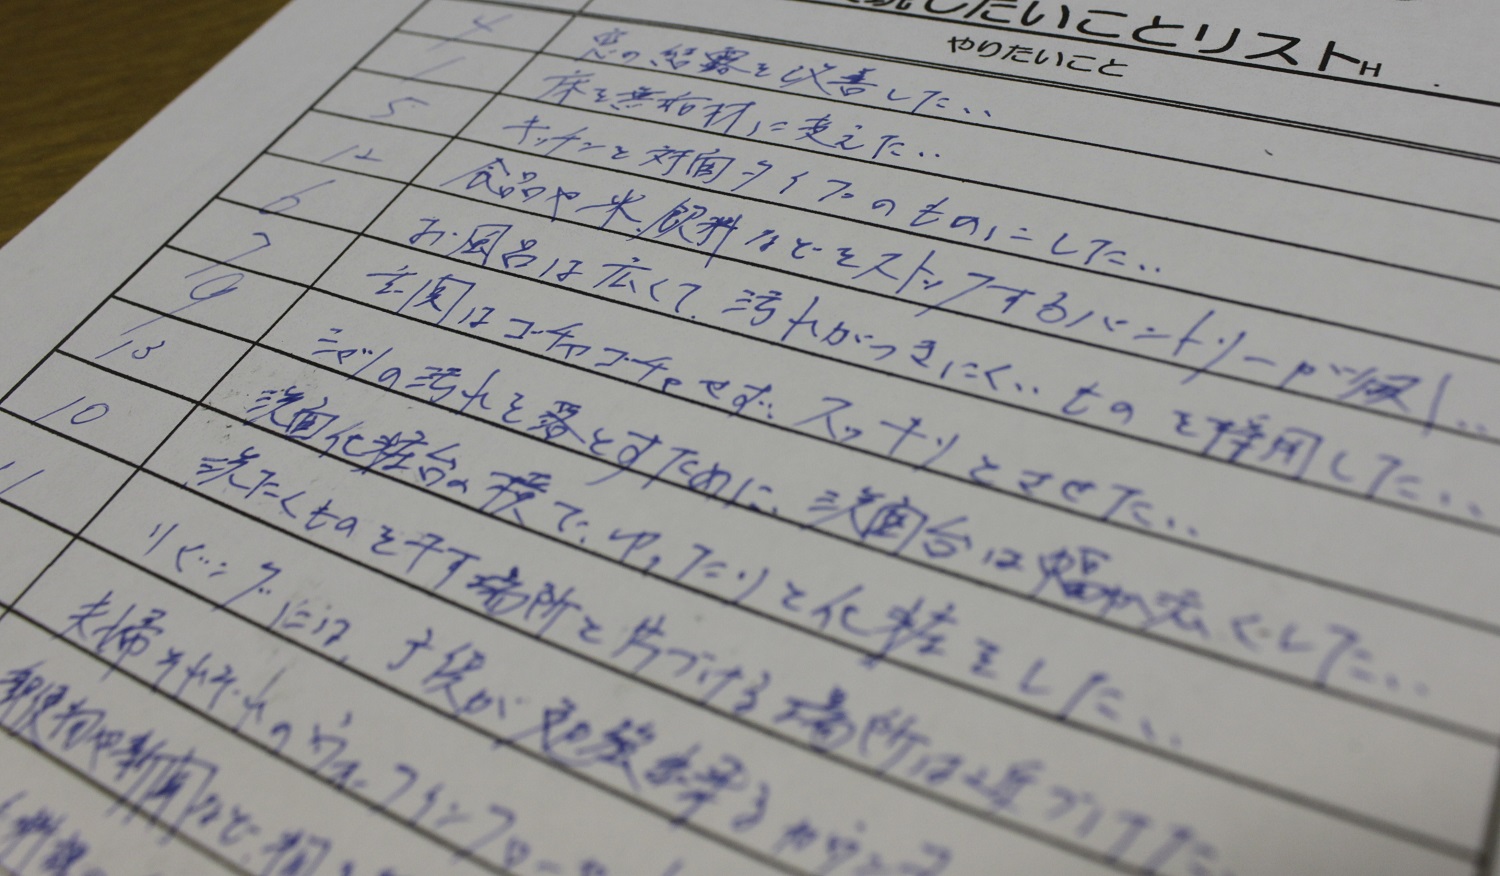 したいことリストH
やりたいこと
4 窓の結露を改善したい
1 床を無垢材に変えたい
5 キッチンを対面タイプのものにしたい
12 食品や米、飲料などをストックするパントリーが欲しい
6 お風呂は広くて、汚れがつきにくいものを採用したい
7 玄関はゴチャゴチャせず、スッキリとさせたい
9 シャツの汚れを落とすために、洗面台は幅が広くしたい
13 洗面化粧台の横で、ゆったりと化粧をしたい
10 洗たくものを干す場所と片づける場所は近づけたい
11 リビングには、子供が勉強出来るカウンター
夫婦それぞれのウォークインクローゼット
や新聞など、